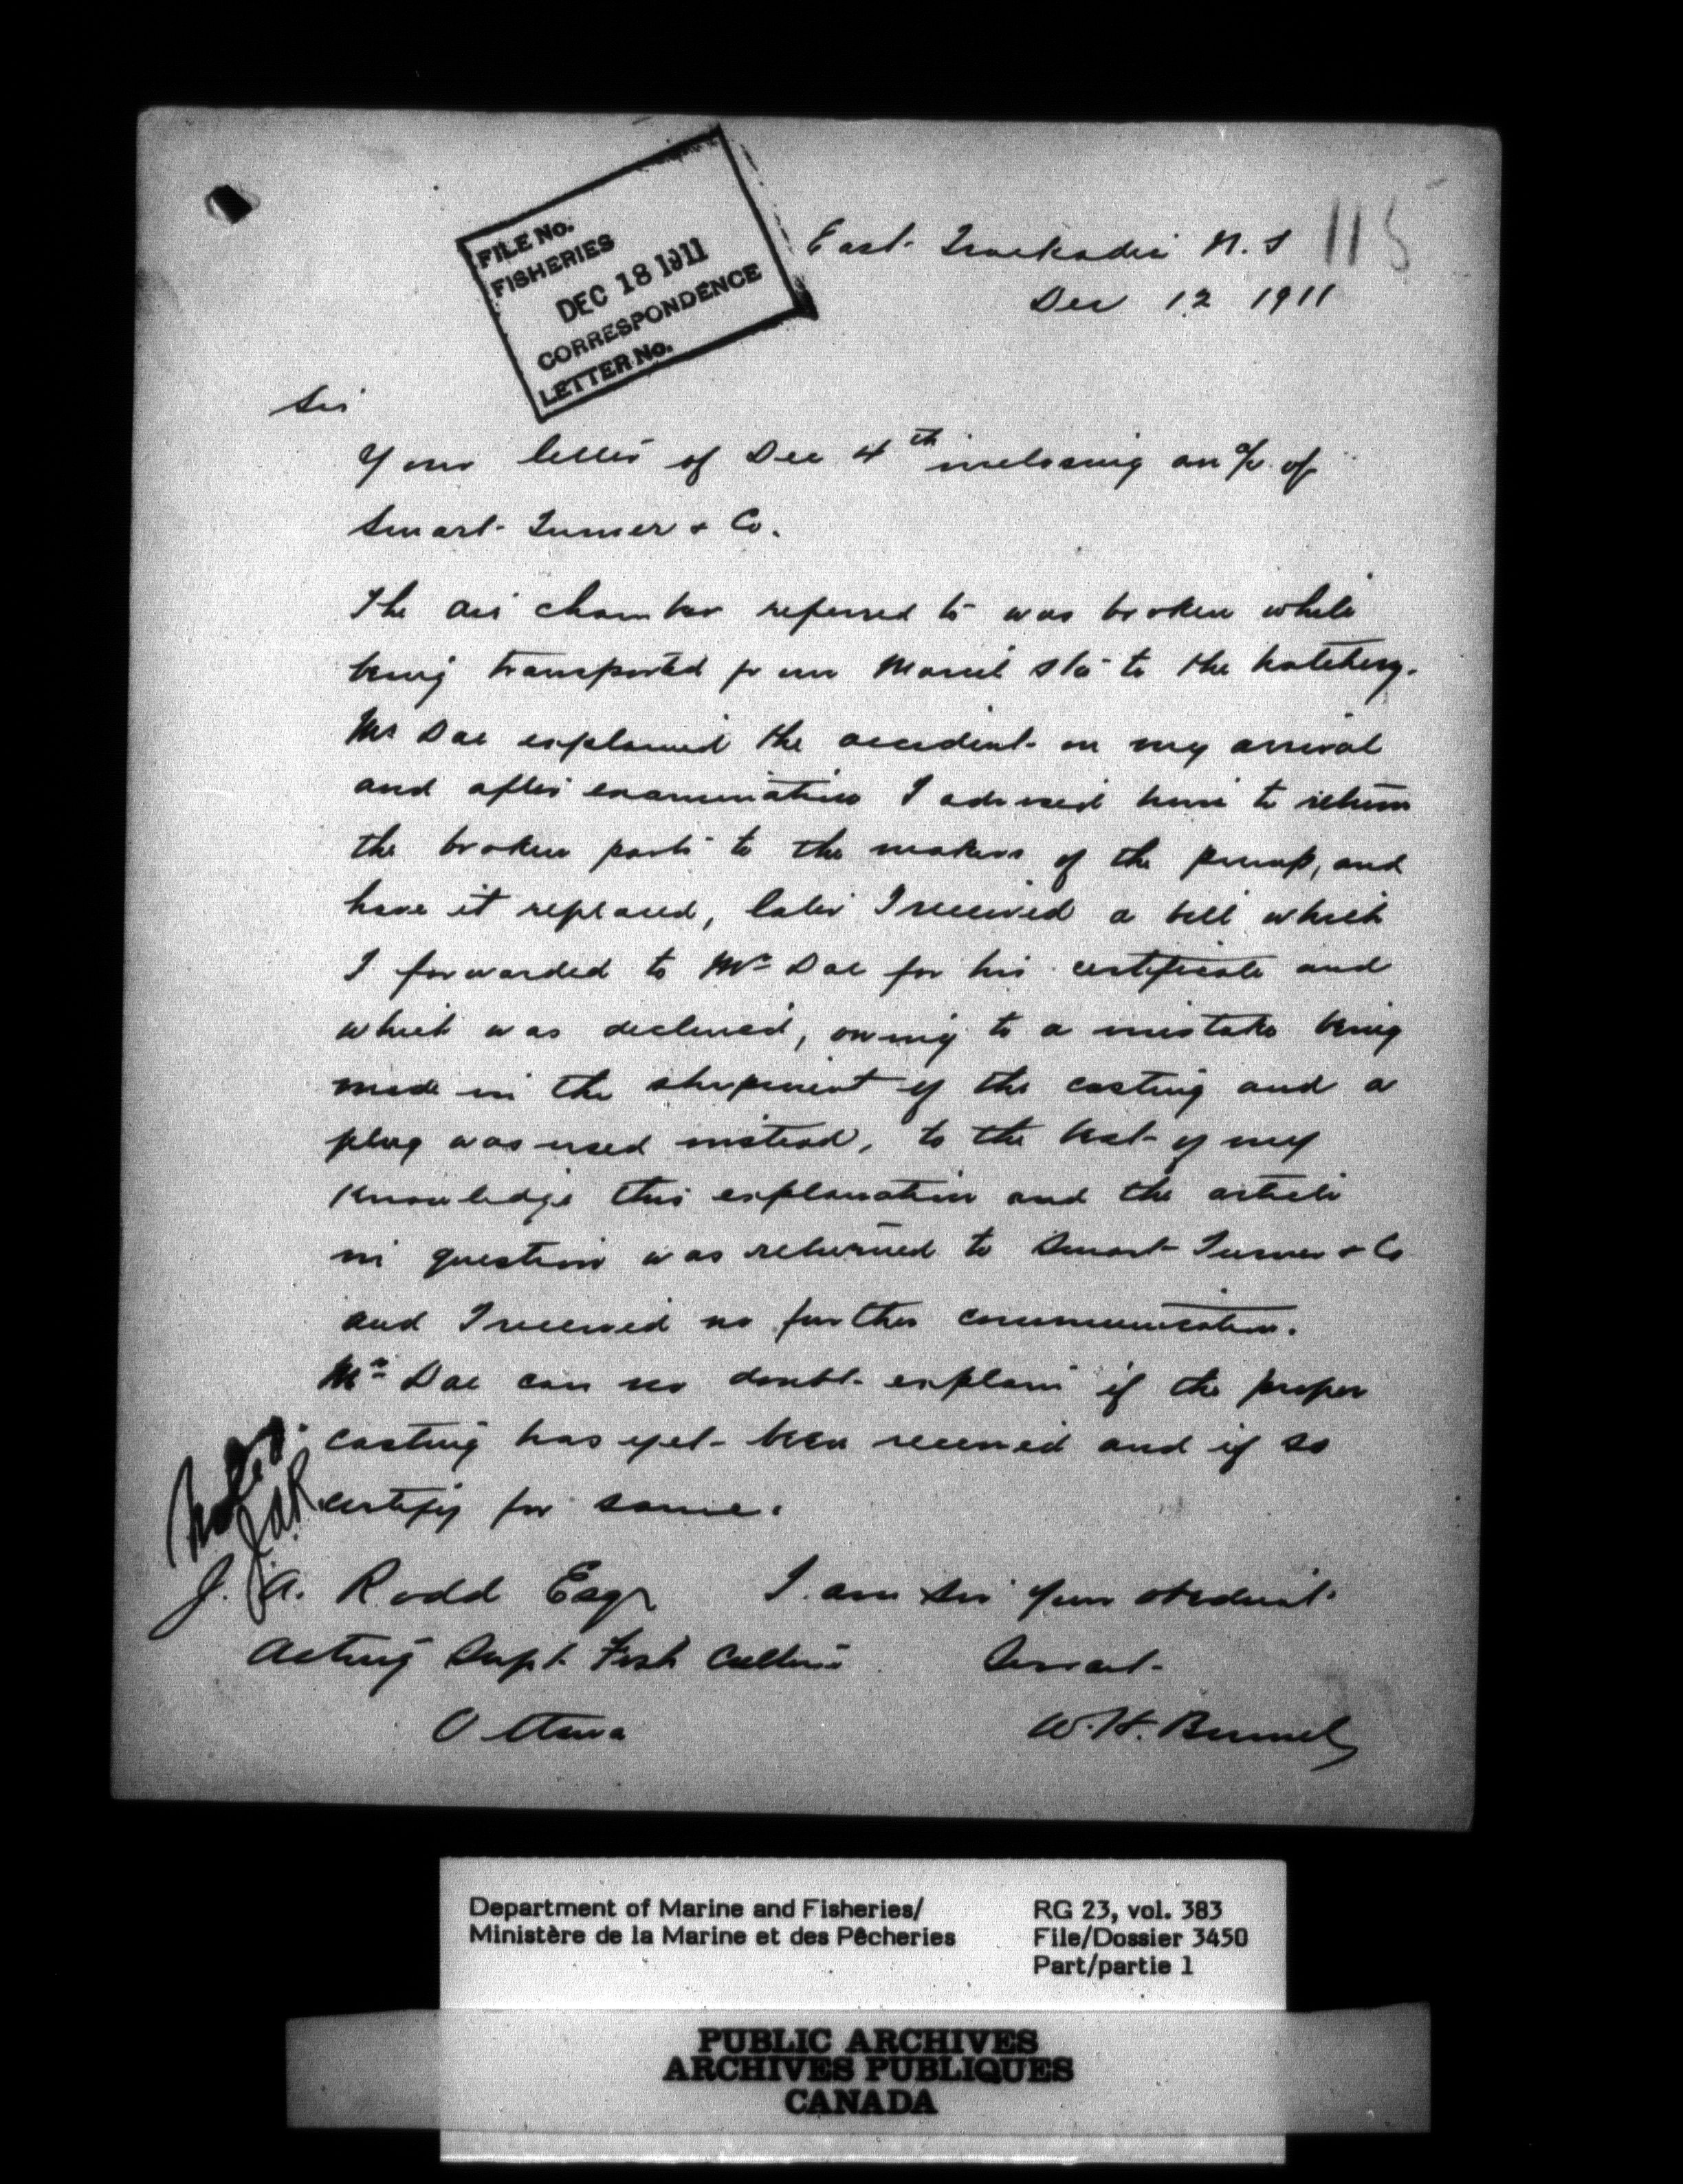 FILE No.
FISHERIES
DEC 18 1911
CORRESPONDENCE
LETTER No.
115
East Trackadie N.S
Dec 12 1911
Sir
Your letter of Dec 4th inclosing an a/c of
Smart-Turner & Co.
The air chamber referred to was broken while
being transported from Sta to the hatchery.
Mr Dae explained the accident on my arrival
and after examination I advised him to return
the broken parts to the makers of the pump, and
have it replaced, later I received a bill which
I forwarded to Mr Dae for his certificate and
which was declined, owing to a mistake being
made in the shipment of the casting and a
plug was used instead, to the best of my
knowledge this explanation and the article
in question was returned to Smart-Turner & Co
and I received no further communication.
Mr Dae can no doubt explain if the proper
casting has yet been received and if so
certify for same.
Noted.
J.A.R.
J. A. Rodd Esqr I am Sir your obedient
Acting Supt. Fish Culture Servant
Ottawa W. H. Bunnel
Department of Marine and Fisheries/ RG 23, vol. 383
Ministère de la Marine et des Pêcheries File/Dossier 3450
Part/partie 1
PUBLIC ARCHIVES
ARCHIVES PUBLIQUES
CANADA